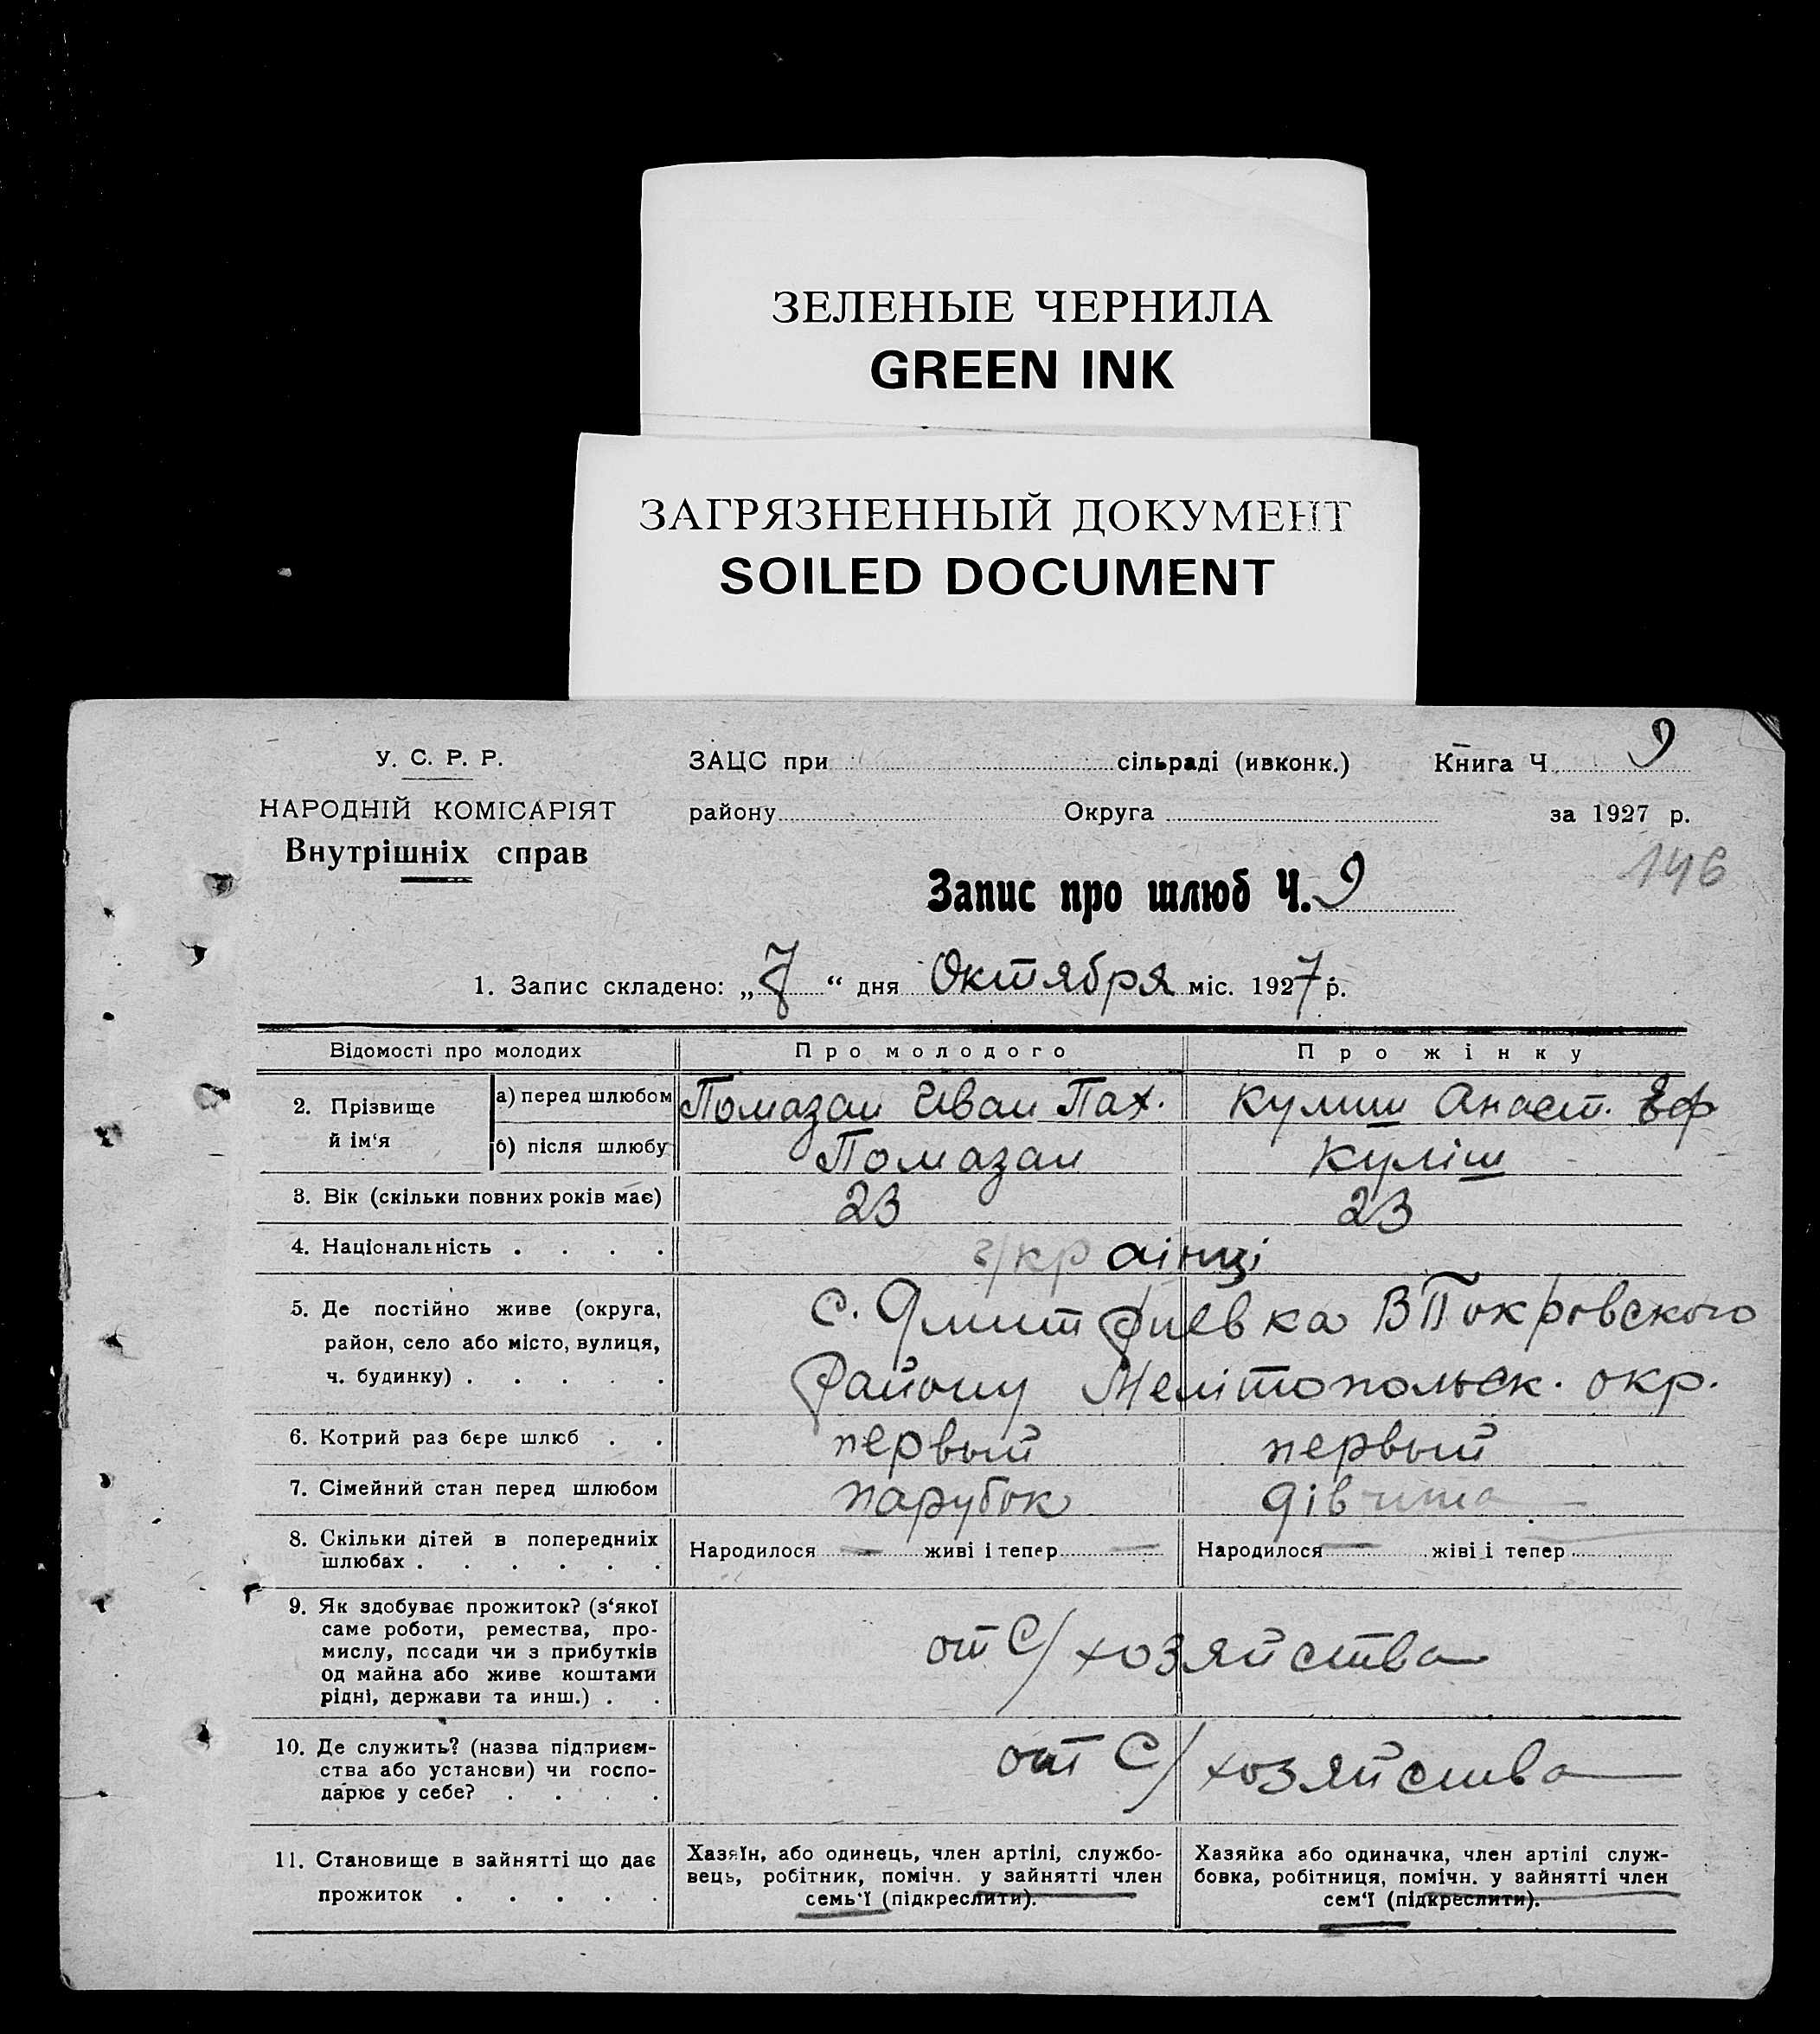 ЗЕЛЕНЫЕ ЧЕРНИЛА
GREEN INK
ЗАГРЯЗНЕННЫЙ ДОКУМЕНТ
SOILED DOCUMENT
У. С. Р. Р.
НАРОДНІЙ КОМІСАРІЯТ
Внутрішніх справ
ЗАЦС при сільраді (ивконк.) Книга Ч. 9
району Округа за 1927 р.
146
Запис про шлюб Ч. 9
1. Запис складено: „7“ дня Октября міс. 1927 р.
Відомості про молодих Про молодого Про жінку
2. Прізвище й ім‘я
а) перед шлюбом Помазан Иван Пах. Кулиш Анаст. Еф
б) після шлюбу Помазан Куліш
3. Вік (скільки повних років має) 23 23
4. Національність . . . . українці
5. Де постійно живе (округа, с. Дмитриевка ВПокровского
район, село або місто, вулиця,
ч. будинку) . . . . . Району Мелітопольск. окр.
6. Котрий раз бере шлюб . . первый первый
7. Сімейний стан перед шлюбом парубок дівчина
8. Скільки дітей в попередниіх
шлюбах . . . . . . Народилося — живі і тепер — Народилося — жіві і тепер
9. Як здобуває прожиток? (з‘якої
саме роботи, ремества, про-
мислу, посади чи з прибутків от С/хозяйства
од майна або живе коштами
рідні, держави та инш.) . .
10. Де служить? (назва підприєм-
ства або установи) чи госпо- от С/хозяйства
дарює у себе? . . . .
11. Становище в зайнятті що дає
прожиток . . . . .
Хазяїн, або одинець, член артілі, службо-
вець, робітник, помічн. у зайнятті член
семь‘ї (підкреслити).
Хазяйка або одиначка, член артілі служ-
бовка, робітниця, помічн. у зайнятті член
сем‘ї (підкреслити).